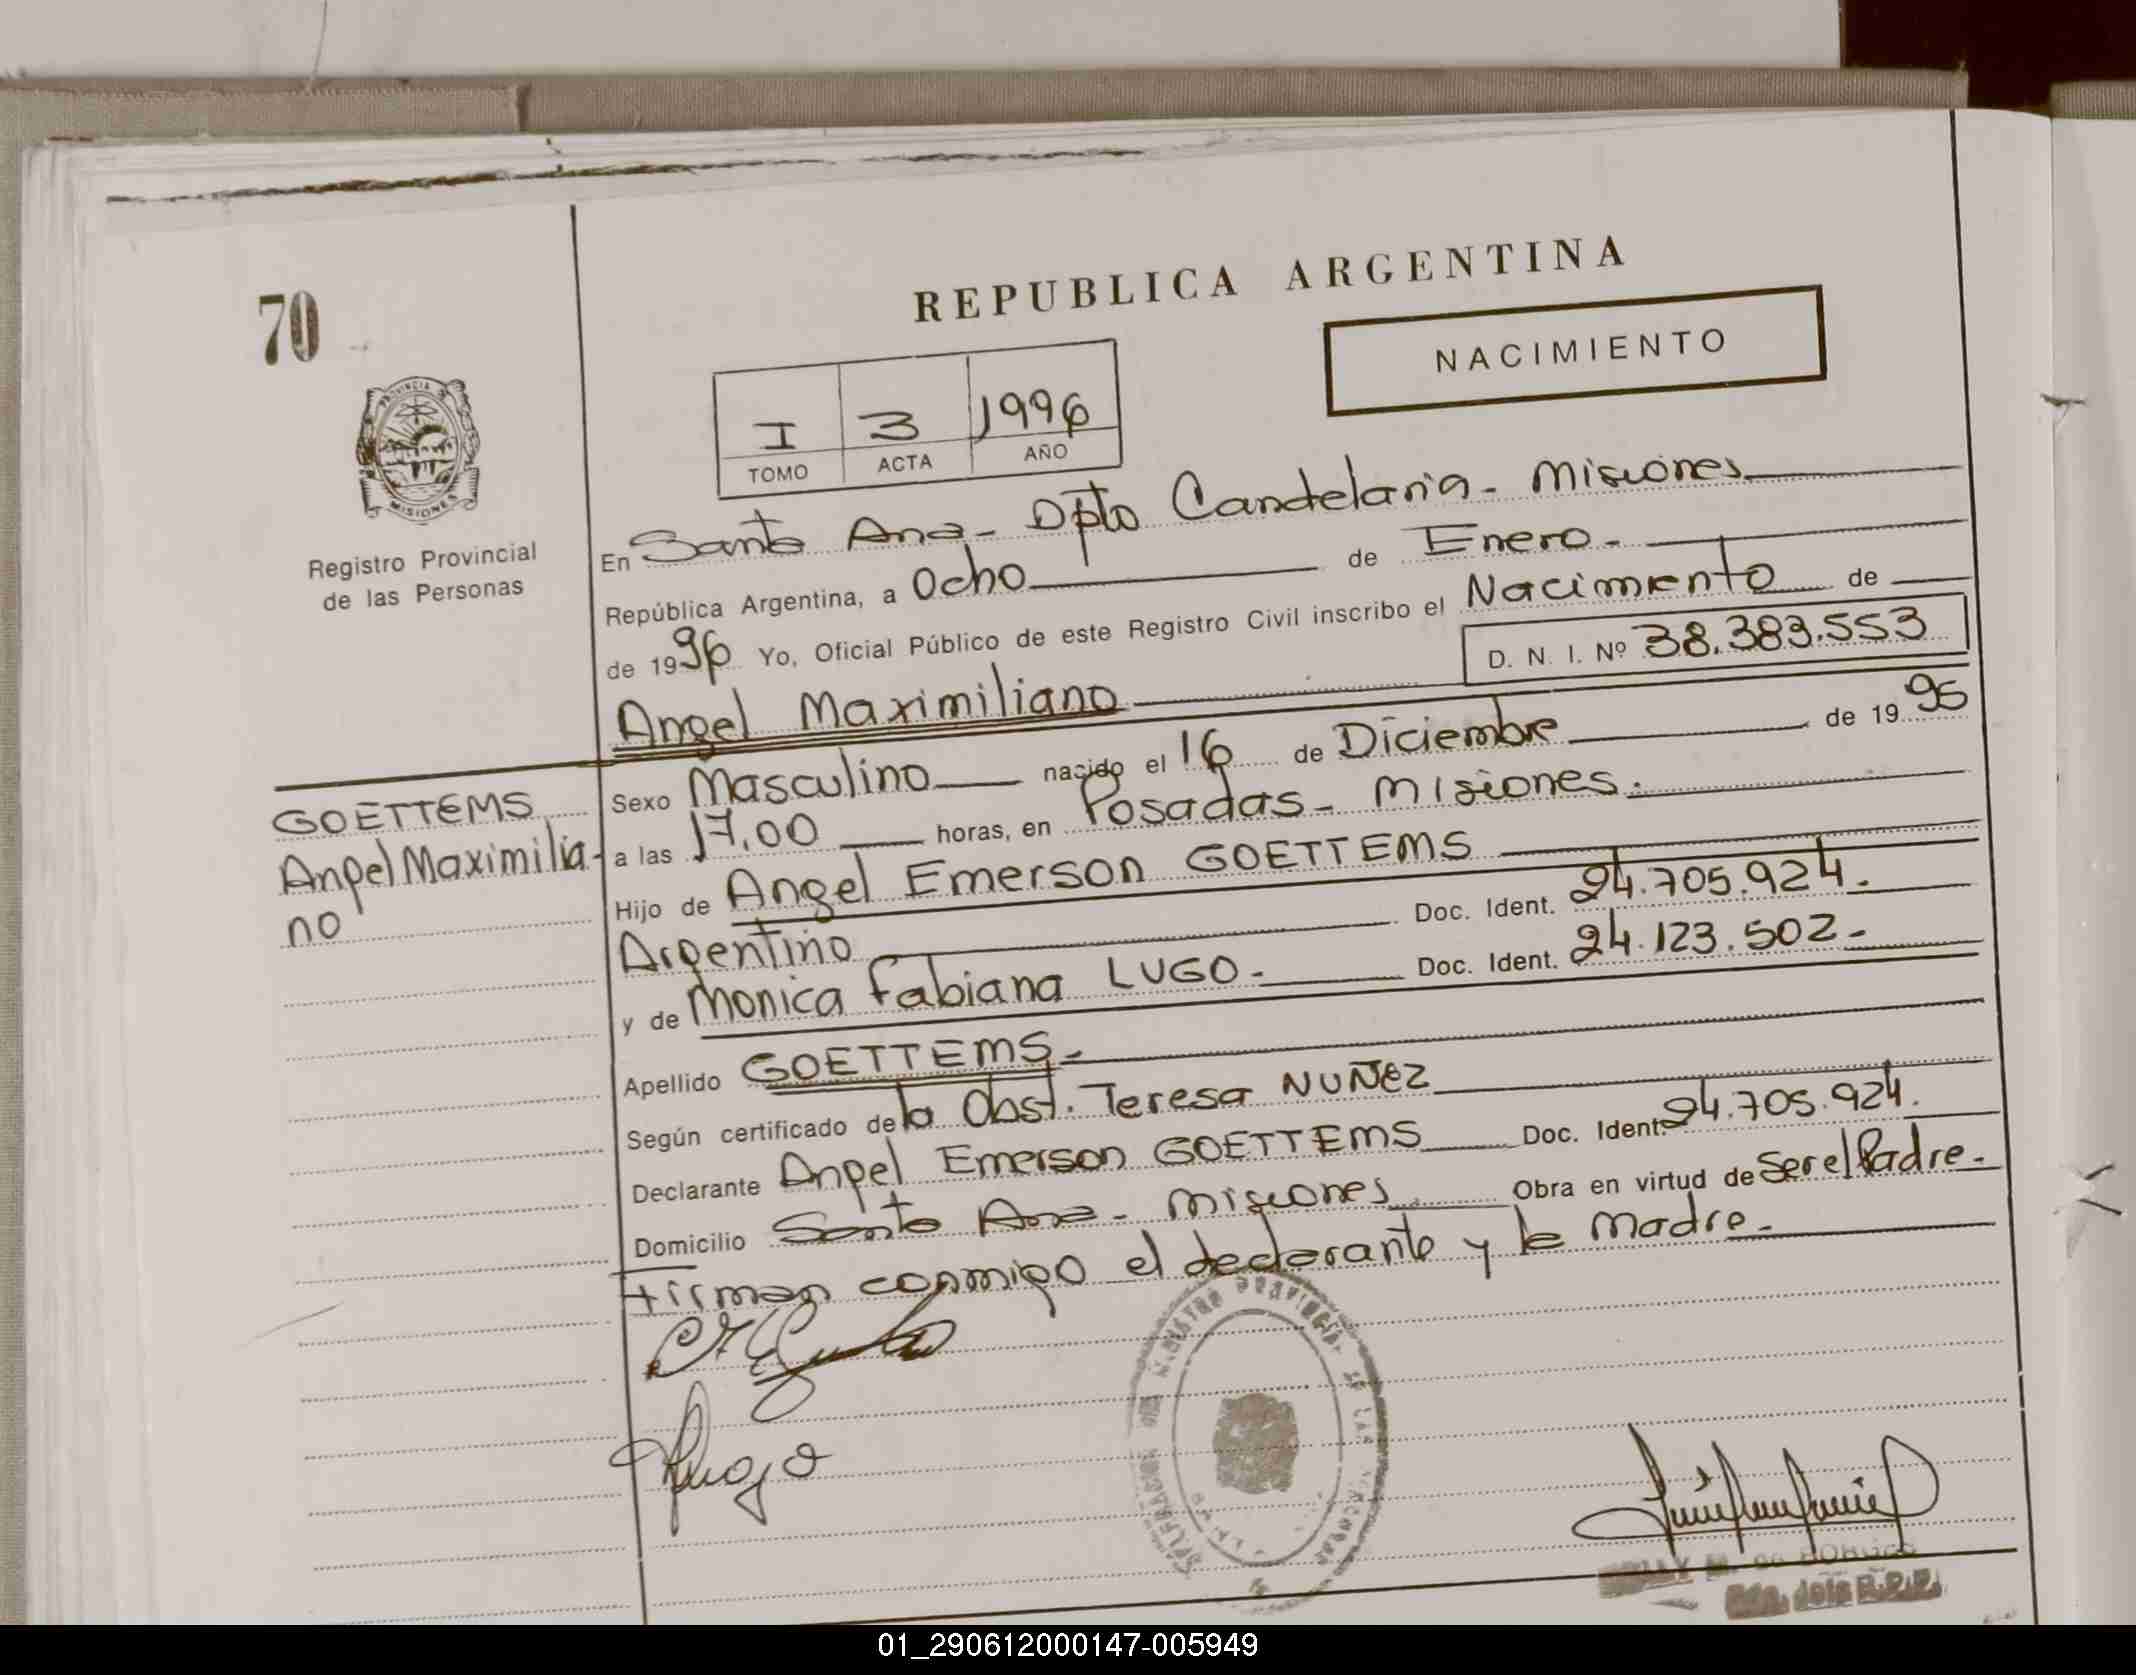 70
REPUBLICA ARGENTINA
NACIMIENTO
I 3 1996
TOMO ACTA AÑO
PROVINCIA
MISIONES
Registro Provincial
de las Personas
En Santa Ana - Dpto Candelaria - Misiones
República Argentina, a Ocho de Enero.
de 1996 Yo, Oficial Público de este Registro Civil inscribo el Nacimiento de
D. N. I. Nº 38.383.553
Angel Maximiliano
Sexo Masculino nacido el 16 de Diciembre de 1995
a las 17,00 horas, en Posadas - Misiones.
Hijo de Angel Emerson GOETTEMS Doc. Ident. 24.705.924.
Argentino
y de Monica Fabiana LUGO. Doc. Ident. 24.123.502-
Apellido GOETTEMS-
Según certificado de la Obst. Teresa NUÑEZ
Declarante Angel Emerson GOETTEMS Doc. Ident. 24.705.924.
Domicilio Santa Ana - Misiones Obra en virtud de Ser el Padre.
Firman conmigo el declarante y la Madre.
GOETTEMS
Angel Maximilia-
no
01_290612000147-005949